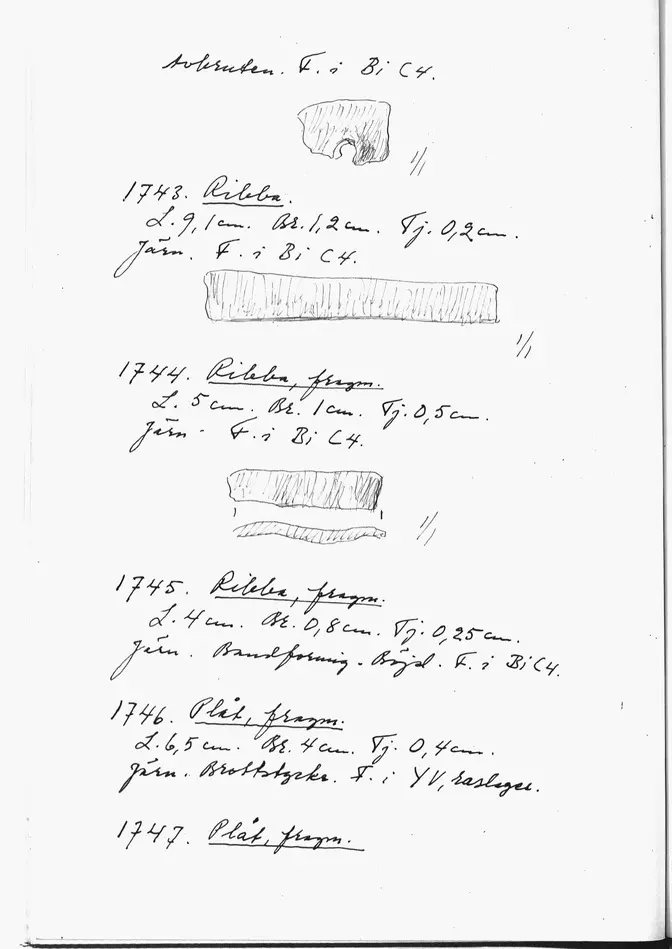 avbruten. F. i Bi C4.
1/1
1743. Ribba.
L. 9,1cm. Br. 1,2cm. Tj. 0,2cm.
Järn. F. i Bi C4.
1/1
1744. Ribba, fragm.
L. 5cm. Br. 1cm. Tj. 0,5cm.
Järn. F. i Bi C4.
1/1
1745. Ribba, fragm.
L. 4cm. Br. 0,8cm. Tj. 0,25cm.
Järn. Bandformig. Böjd. F. i Bi C4.
1746. Plåt, fragm.
L. 6,5cm. Br. 4cm. Tj. 0,4cm.
Järn. Brottstycke. F. i YV, raslager.
1747. Plåt, fragm.